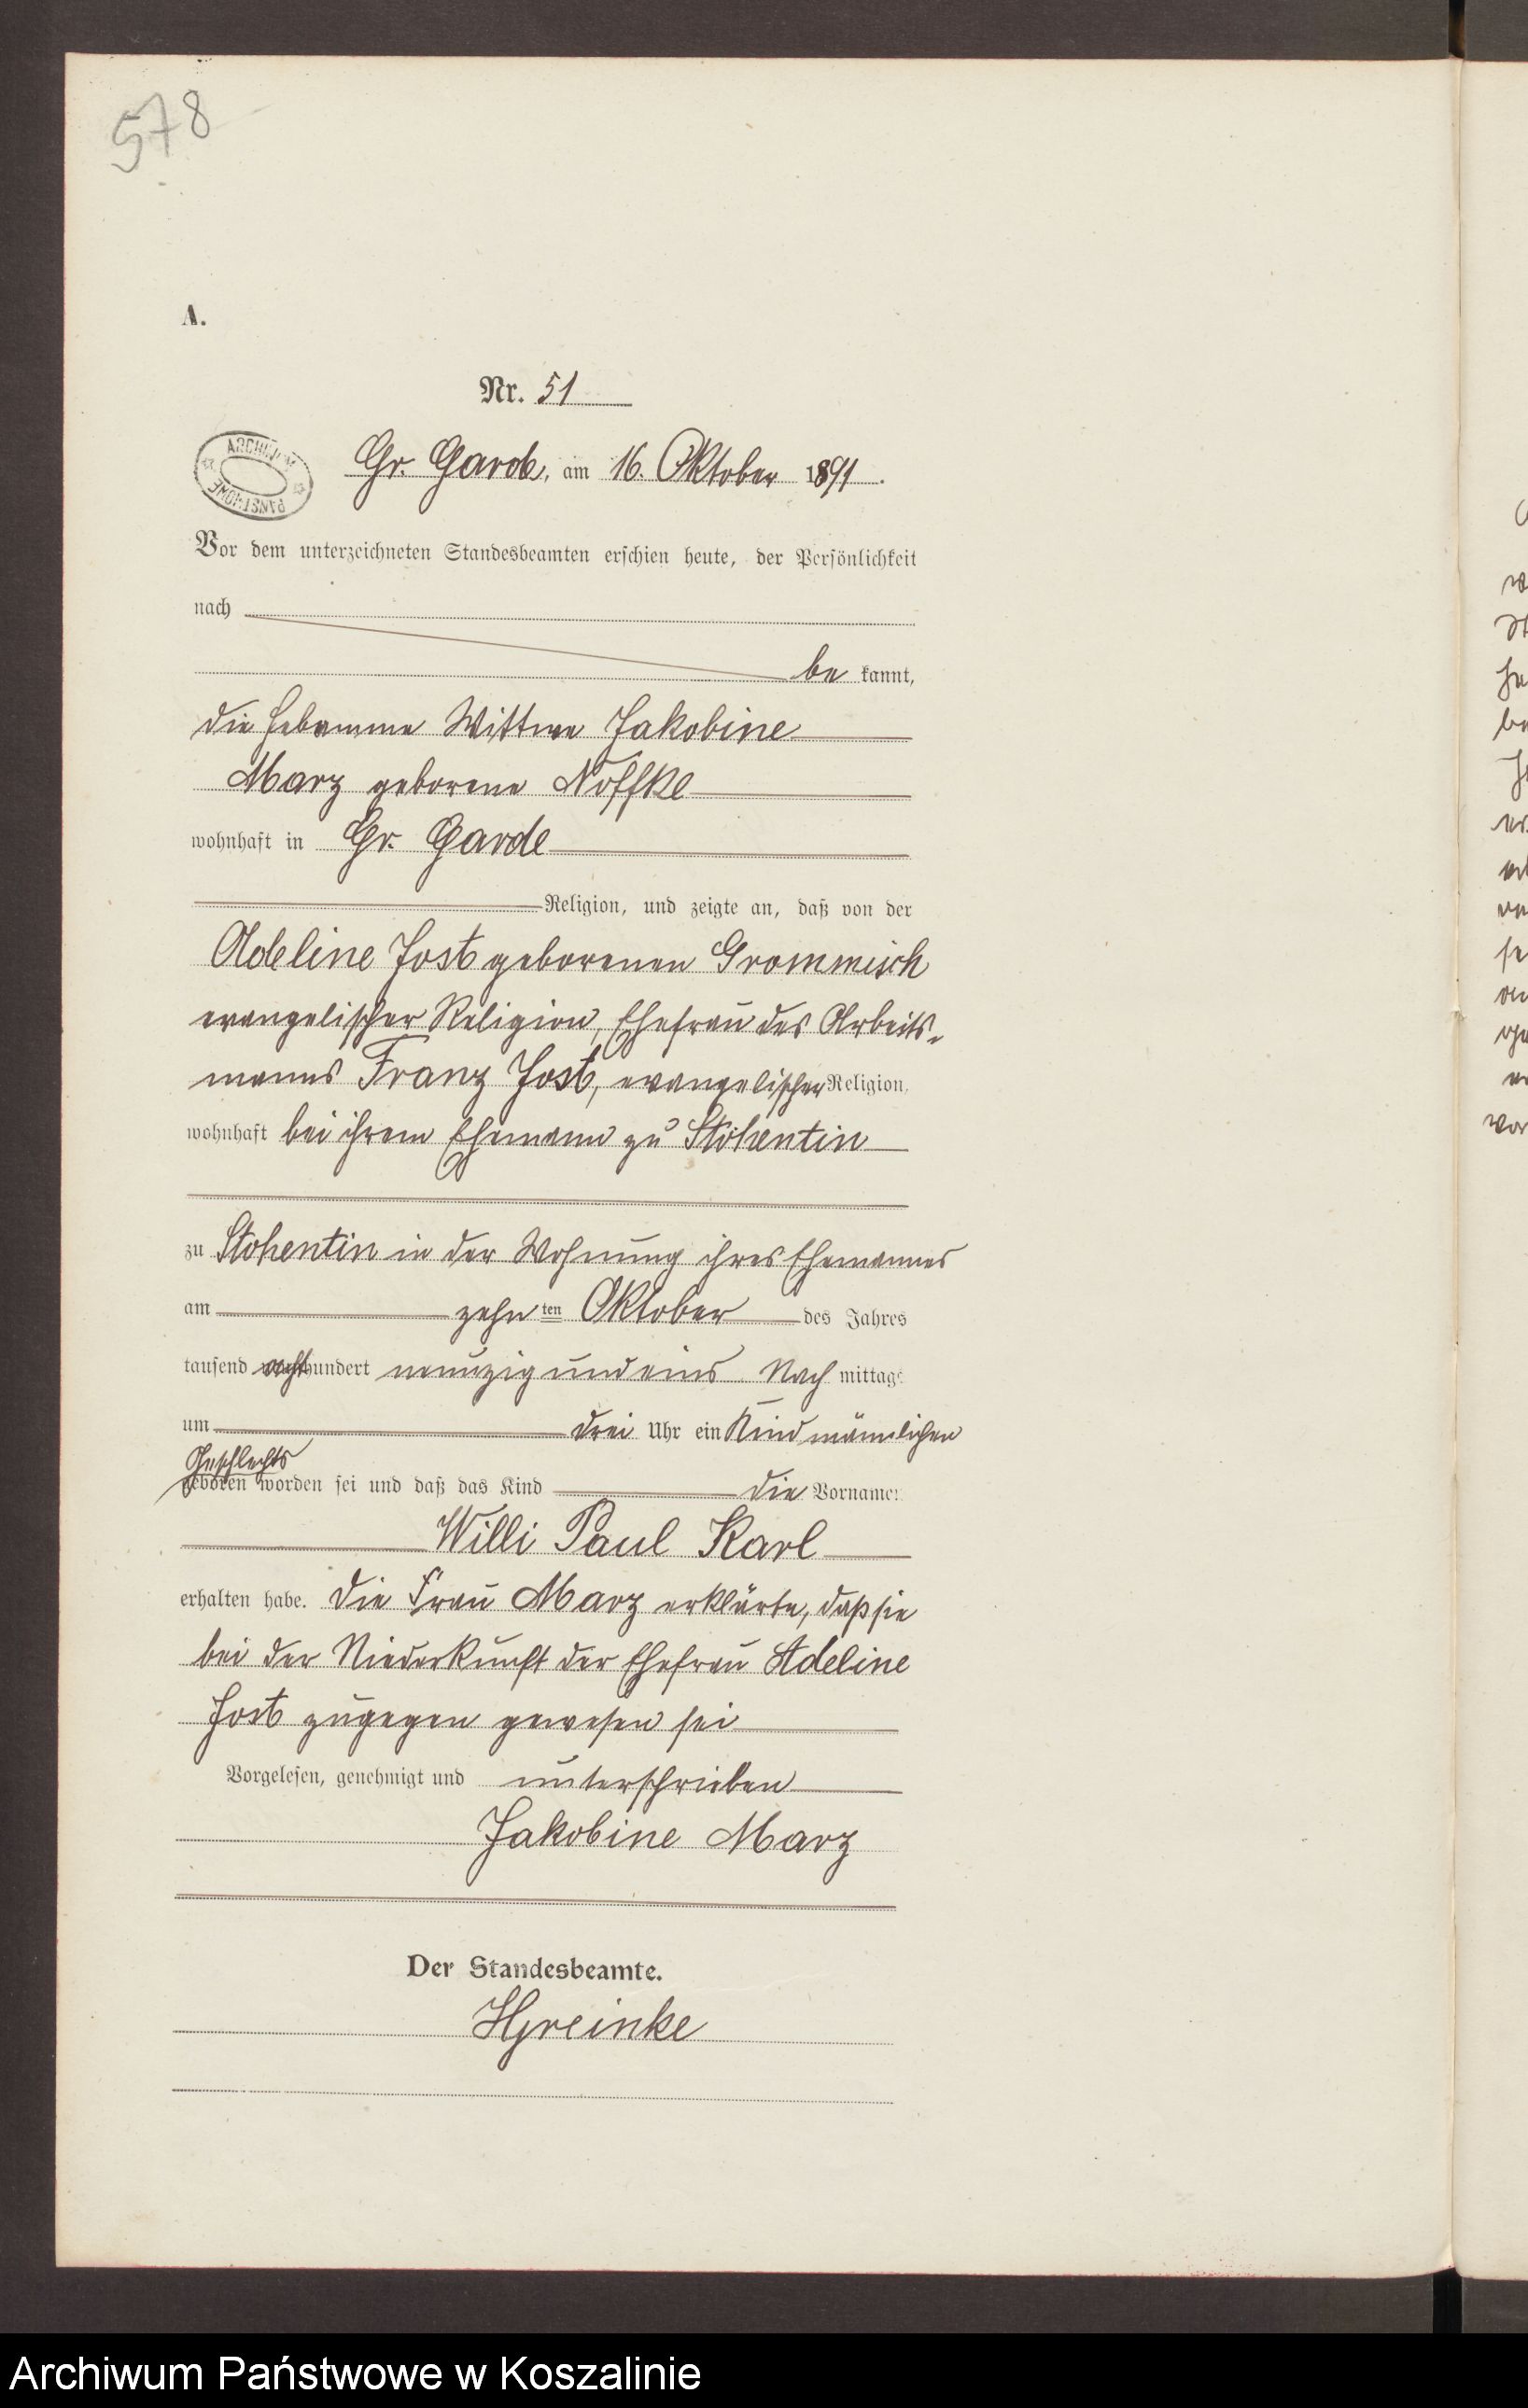 578
A.
Nr. 51
ARCHIWUM PAŃSTWOWE
Gr. Garde, am 16. Oktober 1891.
Vor dem unterzeichneten Standesbeamten erschien heute, der Persönlichkeit
nach
be kannt,
die Hebamme Wittwe Jakobine
Marz geborene Noffke
wohnhaft in Gr. Garde
Religion, und zeigte an, daß von der
Adeline Jost geborenen Grommisch
evangelischer Religion, Ehefrau des Arbeits-
manns Franz Jost, evangelischer Religion,
wohnhaft bei ihrem Ehemann zu Stohentin
zu Stohentin in der Wohnung ihres Ehemannes
am zehn ten Oktober des Jahres
tausend acht hundert neunzig und eins Nach mittags
um drei Uhr ein Kind männlichen
Geschlechts
geboren worden sei und daß das Kind die Vornamen
Willi Paul Karl
erhalten habe. Die Frau Marz erklärte, daß sie
bei der Niederkunft der Ehefrau Adeline
Jost zugegen gewesen sei
Vorgelesen, genehmigt und unterschrieben
Jakobine Marz
Der Standesbeamte.
Archiwum Państwowe w Koszalinie